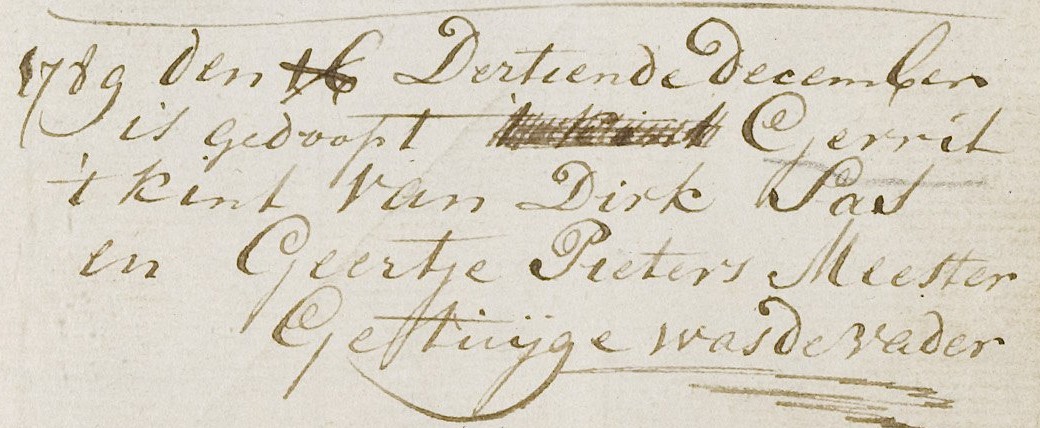 1789 den 16 Dertiende December
is gedoopt Gerrit
't kint van Dirk Pas
en Geertje Pieters Meester
Getuijge was de vader